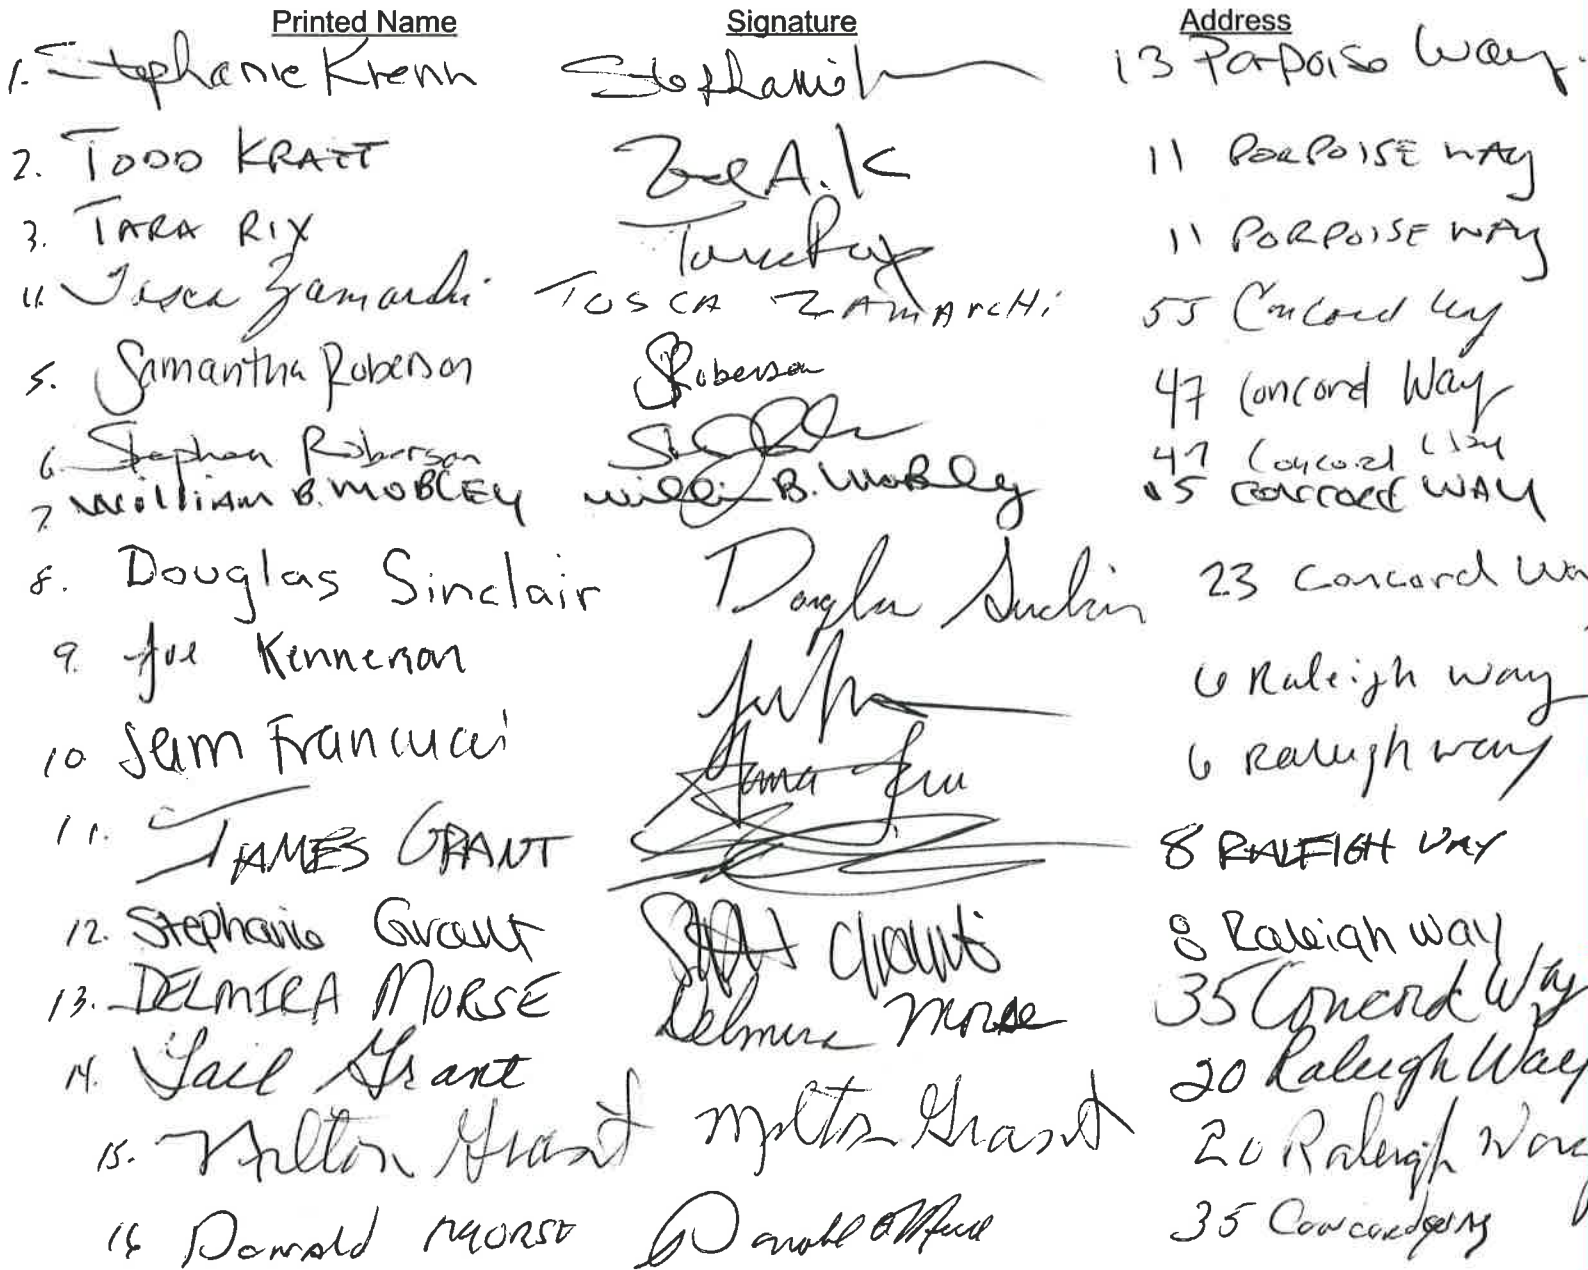 Printed Name Signature Address
1. Stephanie Krenn Stephanie 13 Porpoise Way.
2. TODD KRATT A. K 11 PORPOISE WAY
3. TARA RIX Tara Rix 11 PORPOISE WAY
4. Tosca Zamarchi TOSCA ZAMARCHi 55 Concord Way
5. Samantha Roberson SRoberson 47 Concord Way
6. Stephen Roberson 47 Concord Way
7. William B. MOBLEY William B. Mobley CONCORD WAY
8. Douglas Sinclair Douglas Sinclair 23 Concord Wa
9. Joe Kennerson 6 Raleigh way
10. 6 Raleigh way
11. JAMES GRANT 8 RALEIGH WAY
12. Stephanie Grant Grant 8 Raleigh Way
13. DELMIRA MORSE Delmira Morse 35 Concord Way
14. Gail Grant 20 Raleigh Way
15. Milton Grant Milton Grant 20 Raleigh Way
16 Donald MORSE Donald 35 Concord Way